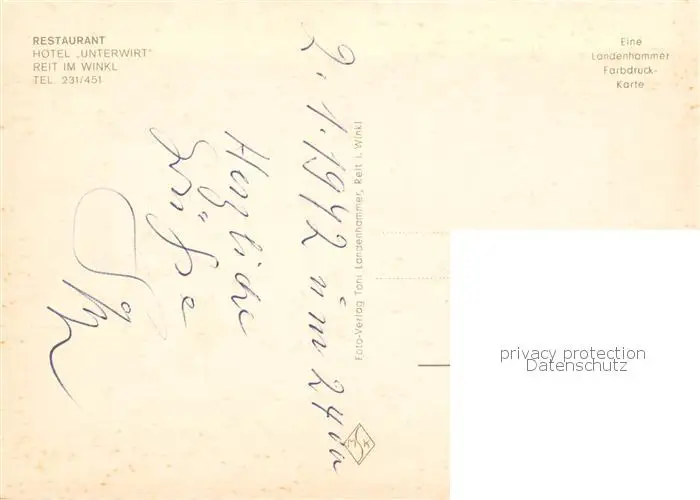 RESTAURANT
HOTEL „UNTERWIRT"
REIT IM WINKL
TEL. 231/451
Eine
Landenhammer
Farbdruck-
Karte
2.1.1942 üm 24 00
Herzliche
Grüße
Foto-Verlag Toni Landenhammer, Reit i. Winkl
MSK
privacy protection
Datenschutz